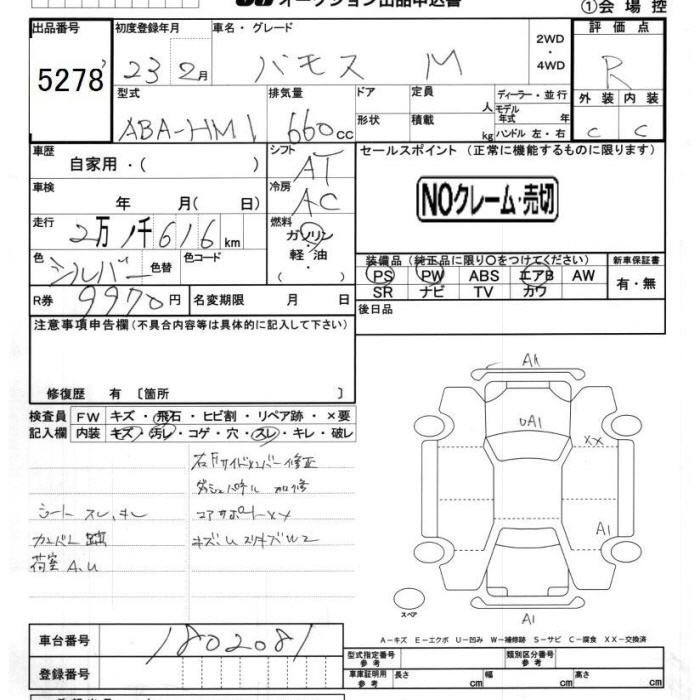 オークション出品申込書
①会場控
出品番号 初度登録年月 車名・グレード 2WD・4WD 評価点
5278 23 2月 バモス M R
型式 排気量 ドア 定員 人 ディーラー・並行 外装 内装
ABA-HM1 660cc 形状 積載 kg モデル年式 年 ハンドル 左・右 C C
車歴 シフト セールスポイント (正常に機能するものに限ります)
自家用・( AT
車検 冷房 NOクレーム・売切
年 月( 日) AC
走行 燃料
2万 1千616km ガソリン
色 色替 色コード 軽・油 装備品 (純正品に限り〇をつけてください) 新車保証書
シルバー ・( ) PS PW ABS エアB AW 有・無
R券 9970円 名変期限 月 日 SR ナビ TV カワ
注意事項申告欄(不具合内容等は具体的に記入して下さい) 後日品
修復歴 有 〔箇所 〕
検査員 FW キズ・飛石・ヒビ割・リペア跡・×要
記入欄 内装 キズ・汚レ・コゲ・穴・スレ・キレ・破レ
修正
ダッシュパネル
シート スレ、キレ コアサポートXX
荷室 A、U キズ、U
A1
UA1
XX
A1
スペア
A1
A-キズ E-エクボ U-凹み W-補修跡 S-サビ C-腐食 XX-交換済
車台番号 1802081
型式指定番号 参考 類別区分番号 参考
登録番号 車庫証明用 参考 長さ cm 幅 cm 高さ cm